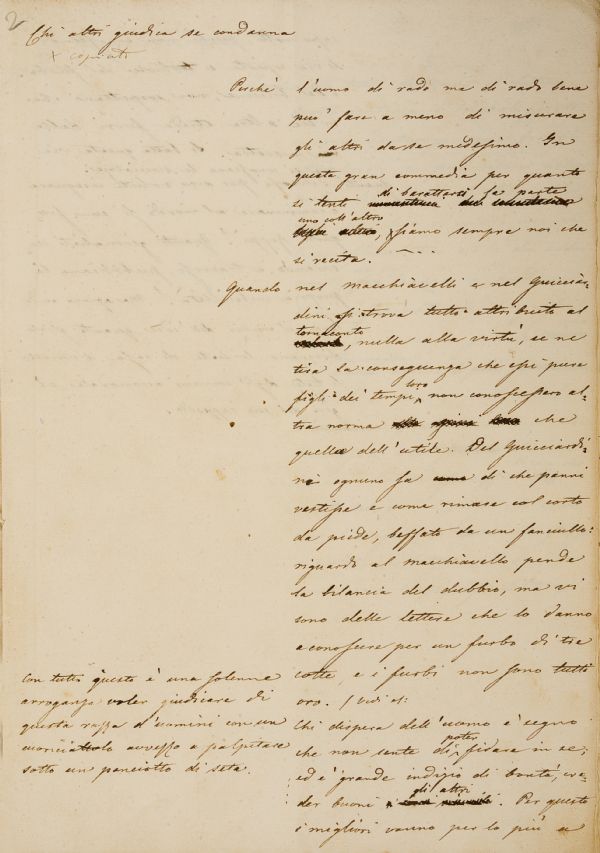 2
Chi altri giudica se condanna
× copiati
Perchè l'uomo di rado ma di rado bene
può fare a meno di misurare
gli altri da se medesimo. In
questa gran commedia per quanto
di barattarsi la parte
si tenti
uno coll'altro
, siamo sempre noi che
si recita.
Quando nel Macchiavelli e nel Guicciar-
dini si trova tutto attribuito al
tornaconto
, nulla alla virtù, se ne
tira la conseguenza che essi pure
loro
figli dei tempi non conoscessero al-
tra norma che
quella dell'utile. Del Guicciardi-
ni ognuno sa di che panni
vestisse e come rimase col corto
da piede, beffato da un fanciullo:
riguardo al Macchiavello pende
la bilancia del dubbio, ma vi
sono delle lettere che lo danno
a conoscere per un furbo di tre
cotte, e i furbi non sono tutti
oro. / Vedi
Con tutto questo è una solenne
arroganza voler giudicare di
questa razza d'uomini con un
avvezzo a palpitare
sotto un panciotto di seta.
Chi dispera dell'uomo è segno
poter
che non sente di fidare in se;
ed è grande indizio di bontà, cre-
gli altri
der buoni . Per questo
i migliori vanno per lo più a